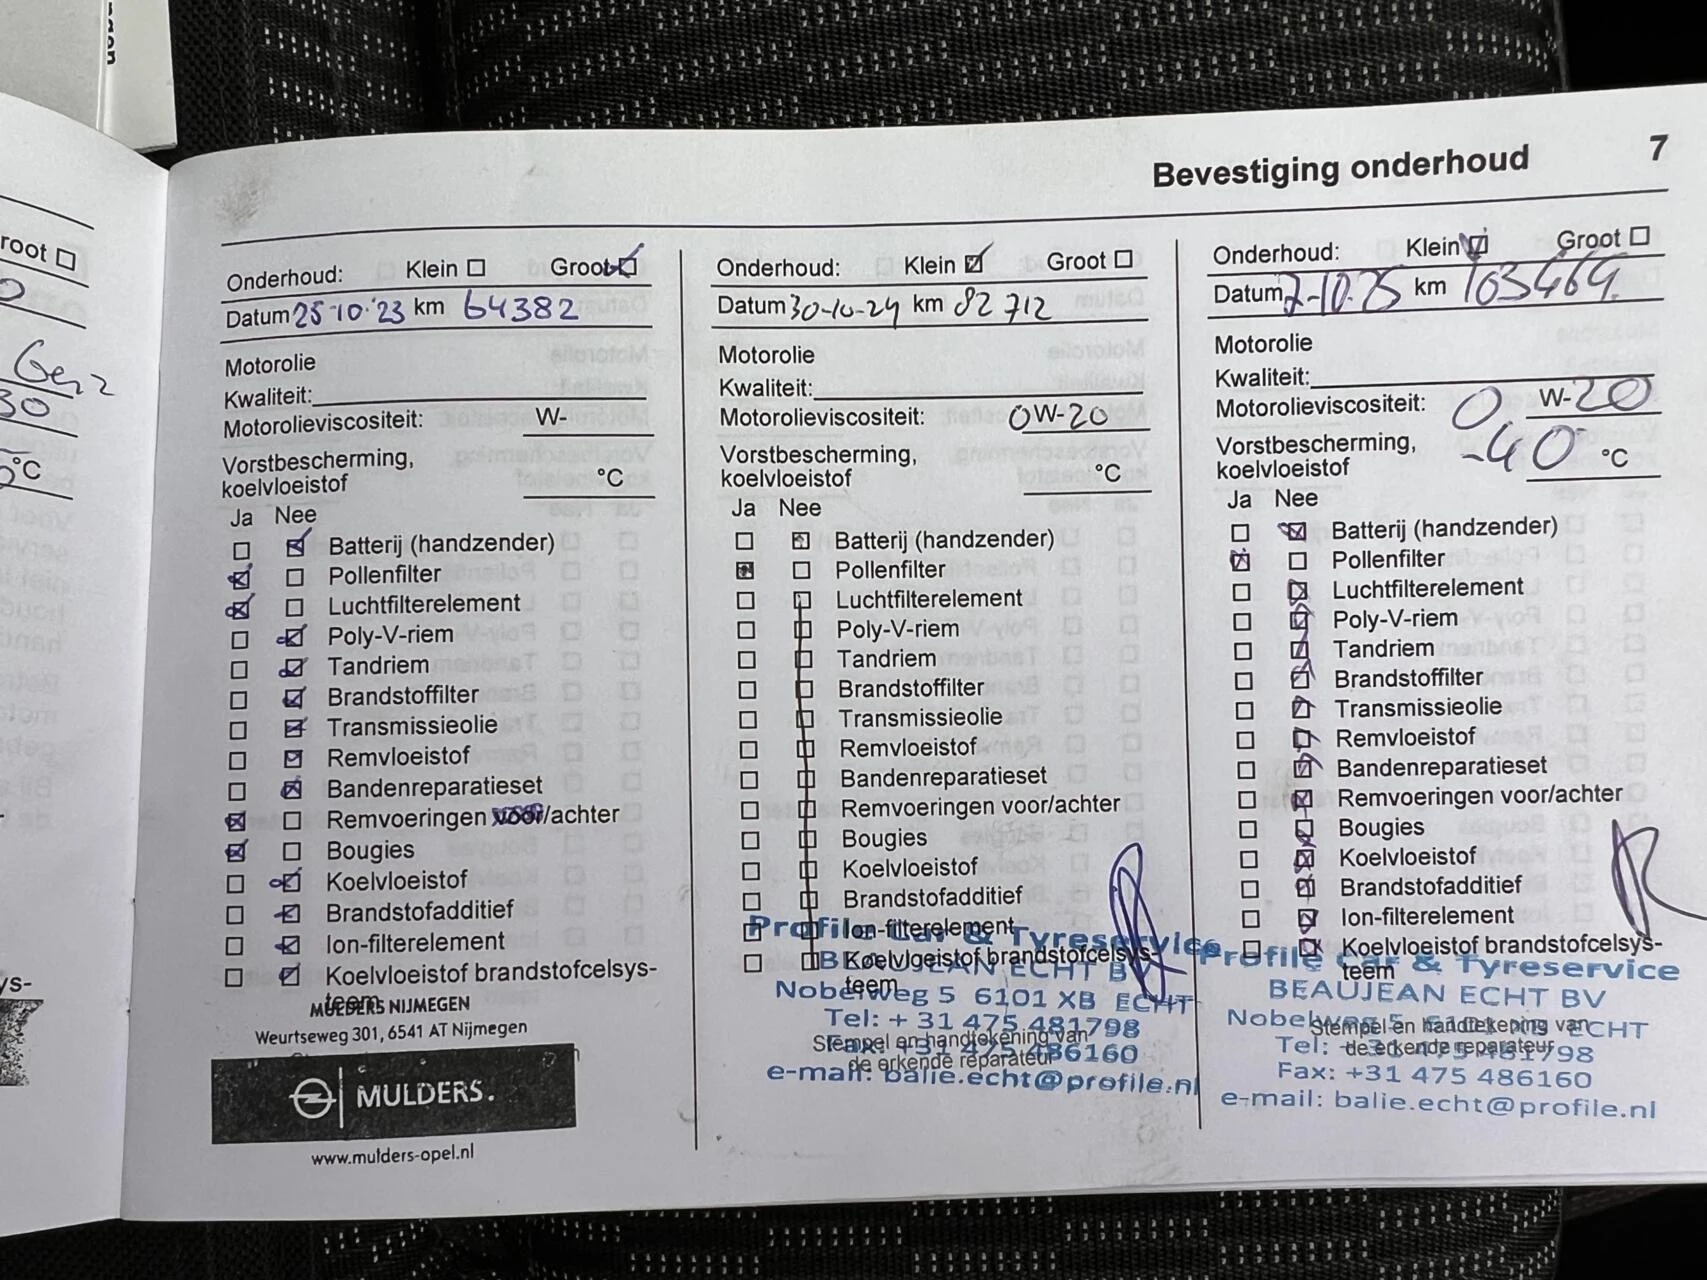 Groot
Gen 2
30
°C
ys-
Bevestiging onderhoud
7
Onderhoud: Klein Groot
Datum 25-10-'23 km 64382
Motorolie
Kwaliteit:
Motorolieviscositeit: W-
Vorstbescherming,
koelvloeistof °C
Ja Nee
Batterij (handzender)
Pollenfilter
Luchtfilterelement
Poly-V-riem
Tandriem
Brandstoffilter
Transmissieolie
Remvloeistof
Bandenreparatieset
Remvoeringen voor/achter
Bougies
Koelvloeistof
Brandstofadditief
Ion-filterelement
Koelvloeistof brandstofcelsys-
teem
MULDERS NIJMEGEN
Weurtseweg 301, 6541 AT Nijmegen
MULDERS.
www.mulders-opel.nl
Onderhoud: Klein Groot
Datum 30-10-24 km 82 712
Motorolie
Kwaliteit:
Motorolieviscositeit: 0W-20
Vorstbescherming,
koelvloeistof °C
Ja Nee
Batterij (handzender)
Pollenfilter
Luchtfilterelement
Poly-V-riem
Tandriem
Brandstoffilter
Transmissieolie
Remvloeistof
Bandenreparatieset
Remvoeringen voor/achter
Bougies
Koelvloeistof
Brandstofadditief
Ion-filterelement
Koelvloeistof brandstofcelsys-
teem
Profile Car & Tyreservice
BEAUJEAN ECHT BV
Nobelweg 5 6101 XB ECHT
Tel: + 31 475 481798
Stempel en handtekening van
de erkende reparateur
Fax: +31 475 486160
e-mail: balie.echt@profile.nl
Onderhoud: Klein Groot
Datum 7-10-25 km 103464
Motorolie
Kwaliteit:
Motorolieviscositeit: 0 W-20
Vorstbescherming,
koelvloeistof -40 °C
Ja Nee
Batterij (handzender)
Pollenfilter
Luchtfilterelement
Poly-V-riem
Tandriem
Brandstoffilter
Transmissieolie
Remvloeistof
Bandenreparatieset
Remvoeringen voor/achter
Bougies
Koelvloeistof
Brandstofadditief
Ion-filterelement
Koelvloeistof brandstofcelsys-
teem
Profile Car & Tyreservice
BEAUJEAN ECHT BV
Nobelweg 5 6101 XB ECHT
Stempel en handtekening van
de erkende reparateur
Tel: +31 475 481798
Fax: +31 475 486160
e-mail: balie.echt@profile.nl